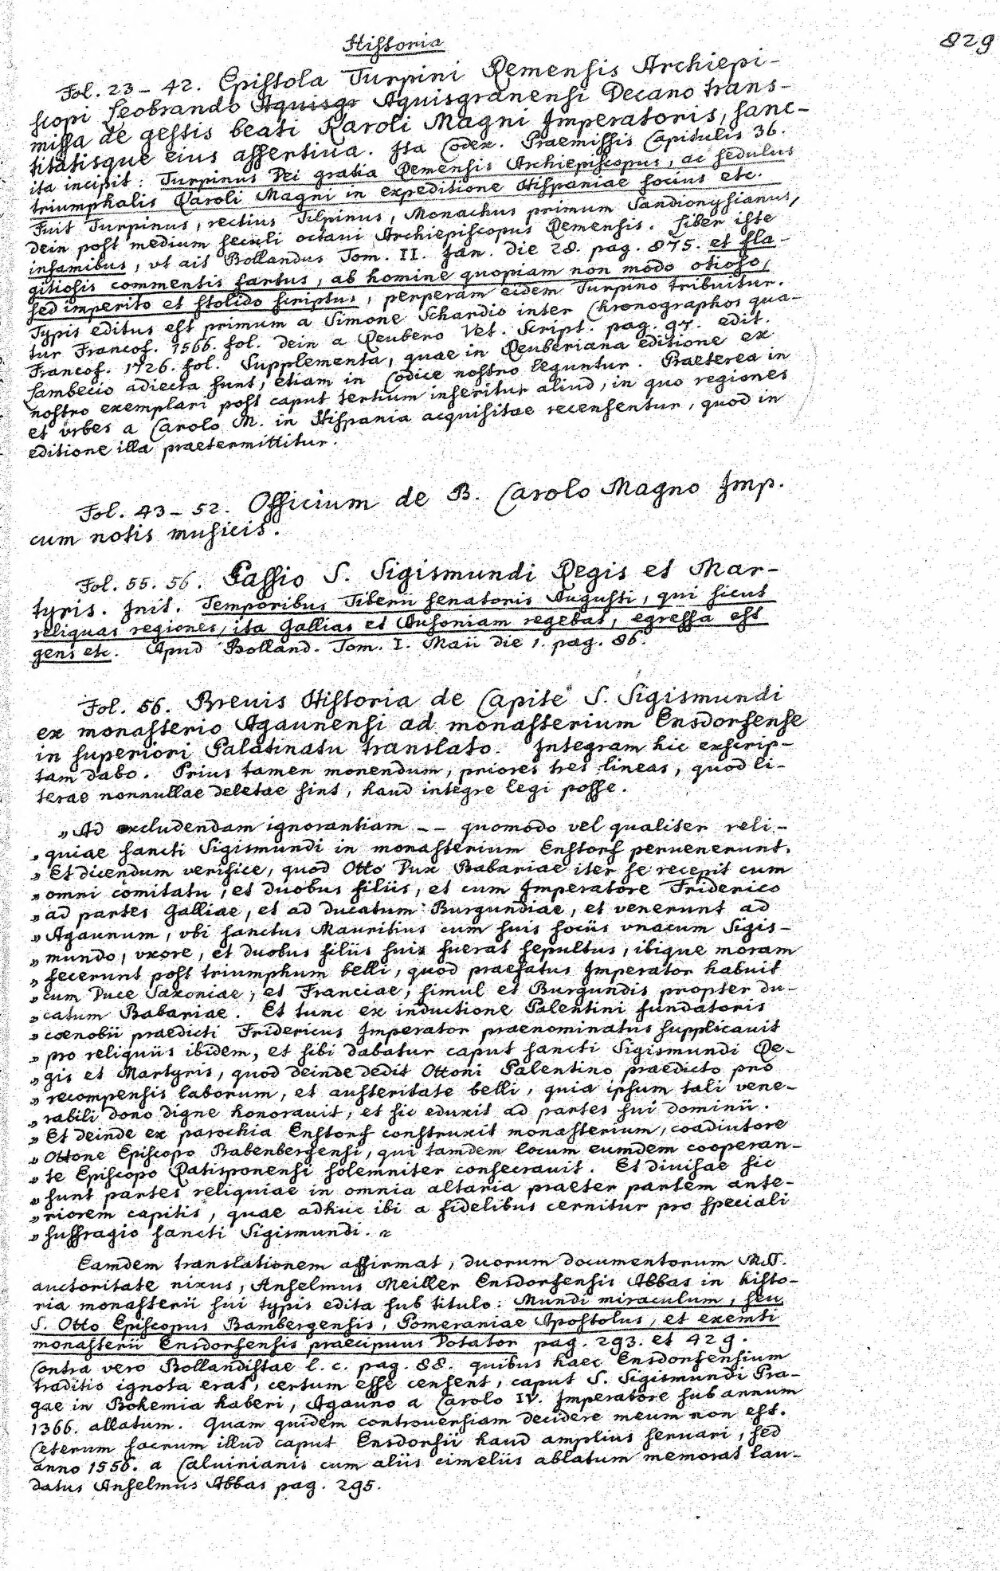 Historia
829
Fol. 23 – 42. Epistola Turpini Remensis Archiepi-
scopi Leobrando Aquisgr Aquisgranensi Decano trans-
missa de gestis beati Karoli Magni Imperatoris, sanc-
titatisque eius assertiua. Ita Codex. Praemissis Capitulis 36.
ita incipit: Turpinus Dei gratia Remensis Archiepiscopus, ac sedulus
triumphalis Karoli Magni in expeditione Hispaniae socius etc.
Fuit Turpinus, rectius Tilpinus, Monachus primum Sandionysianus,
dein post medium seculi octaui Archiepiscopus Remensis. Liber iste
infamibus, vt ait Bollandus Tom. II. Jan. die 28. pag. 875. et fla-
gitiosis commentis fartus, ab homine quopiam non modo otioso,
sed imperito et stolido scriptus, perperam eidem Turpino tribuitur.
Typis editus est primum a Simone Schardio inter Chronographos qua-
tur Francof. 1566. fol. dein a Reubero Vet. Script. pag. 97. edit.
Francof. 1726. fol. Supplementa, quae in Reuberiana editione ex
Lambecio adiecta sunt, etiam in Codice nostro leguntur. Praeterea in
nostro exemplari post caput tertium inseritur aliud, in quo regiones
et vrbes a Carolo M. in Hispania acquisitae recensentur, quod in
editione illa praetermittitur.
Fol. 43 – 52. Officium de B. Carolo Magno Imp.
cum notis musicis.
Fol. 55. 56. Passio S. Sigismundi Regis et Mar-
tyris. Init. Temporibus Tiberii senatoris Augusti, qui sicut
reliquas regiones, ita Gallias et Ausoniam regebat, egressa est
gens etc. Apud Bolland. Tom. I. Maii die 1. pag. 86.
Fol. 56. Breuis Historia de Capite S. Sigismundi
ex monasterio Agaunensi ad monasterium Ensdorfense
in superiori Palatinatu translato. Integram hic exscrip-
tam dabo. Prius tamen monendum, priores tres lineas, quod li-
terae nonnullae deletae sint, haud integre legi posse.
„ Ad excludendam ignorantiam -- quomodo vel qualiter reli-
„ quiae sancti Sigismundi in monasterium Enstorf peruenerunt.
„ Et dicendum verifice, quod Otto Dux Babariae iter se recepit cum
„ omni comitatu, et duobus filiis, et cum Imperatore Friderico
„ ad partes Galliae, et ad ducatum Burgundiae, et venerunt ad
„ Agaunum, vbi sanctus Mauritius cum suis sociis vnacum Sigis-
„ mundo, vxore, et duobus filiis suis fuerat sepultus, ibique moram
„ fecerunt post triumphum belli, quod praefatus Imperator habuit
„ cum Duce Saxoniae, et Franciae, simul et Burgundis propter du-
„ catum Babariae. Et tunc ex inductione Palentini fundatoris
„ coenobii praedicti Fridericus Imperator praenominatus supplicauit
„ pro reliquiis ibidem, et sibi dabatur caput sancti Sigismundi Re-
„ gis et Martyris, quod deinde dedit Ottoni Palentino praedicto pro
„ recompensis laborum, et austeritate belli, quia ipsum tali vene-
„ rabili dono digne honorauit, et sic eduxit ad partes sui dominii.
„ Et deinde ex parochia Enstorf construxit monasterium, coadiutore
„ Ottone Episcopo Babenbergensi, qui tamdem locum eumdem cooperan-
„ te Episcopo Ratisponensi solemniter consecrauit. Et diuisae sic
„ sunt partes reliquiae in omnia altaria praeter partem ante-
„ riorem capitis, quae adhuc ibi a fidelibus cernitur pro speciali
„ suffragio sancti Sigismundi. “
Eamdem translationem affirmat, duorum documentorum MSS.
auctoritate nixus, Anselmus Meiller Ensdorfensis Abbas in histo-
ria monasterii sui typis edita sub titulo: Mundi miraculum, seu
S. Otto Episcopus Bambergensis, Pomeraniae Apostolus, et exemti
monasterii Ensdorfensis praecipuus Dotator pag. 293. et 429.
Contra vero Bollandistae l. c. pag. 88. quibus haec Ensdorfensium
traditio ignota erat, certum esse censent, caput S. Sigismundi Pra-
gae in Bohemia haberi, Agauno a Carolo IV. Imperatore sub annum
1366. allatum. Quam quidem controuersiam decidere meum non est.
Ceterum sacrum illud caput Ensdorfii haud amplius seruari, sed
anno 1556. a Caluinianis cum aliis cimeliis ablatum memorat lau-
datus Anselmus Abbas pag. 295.